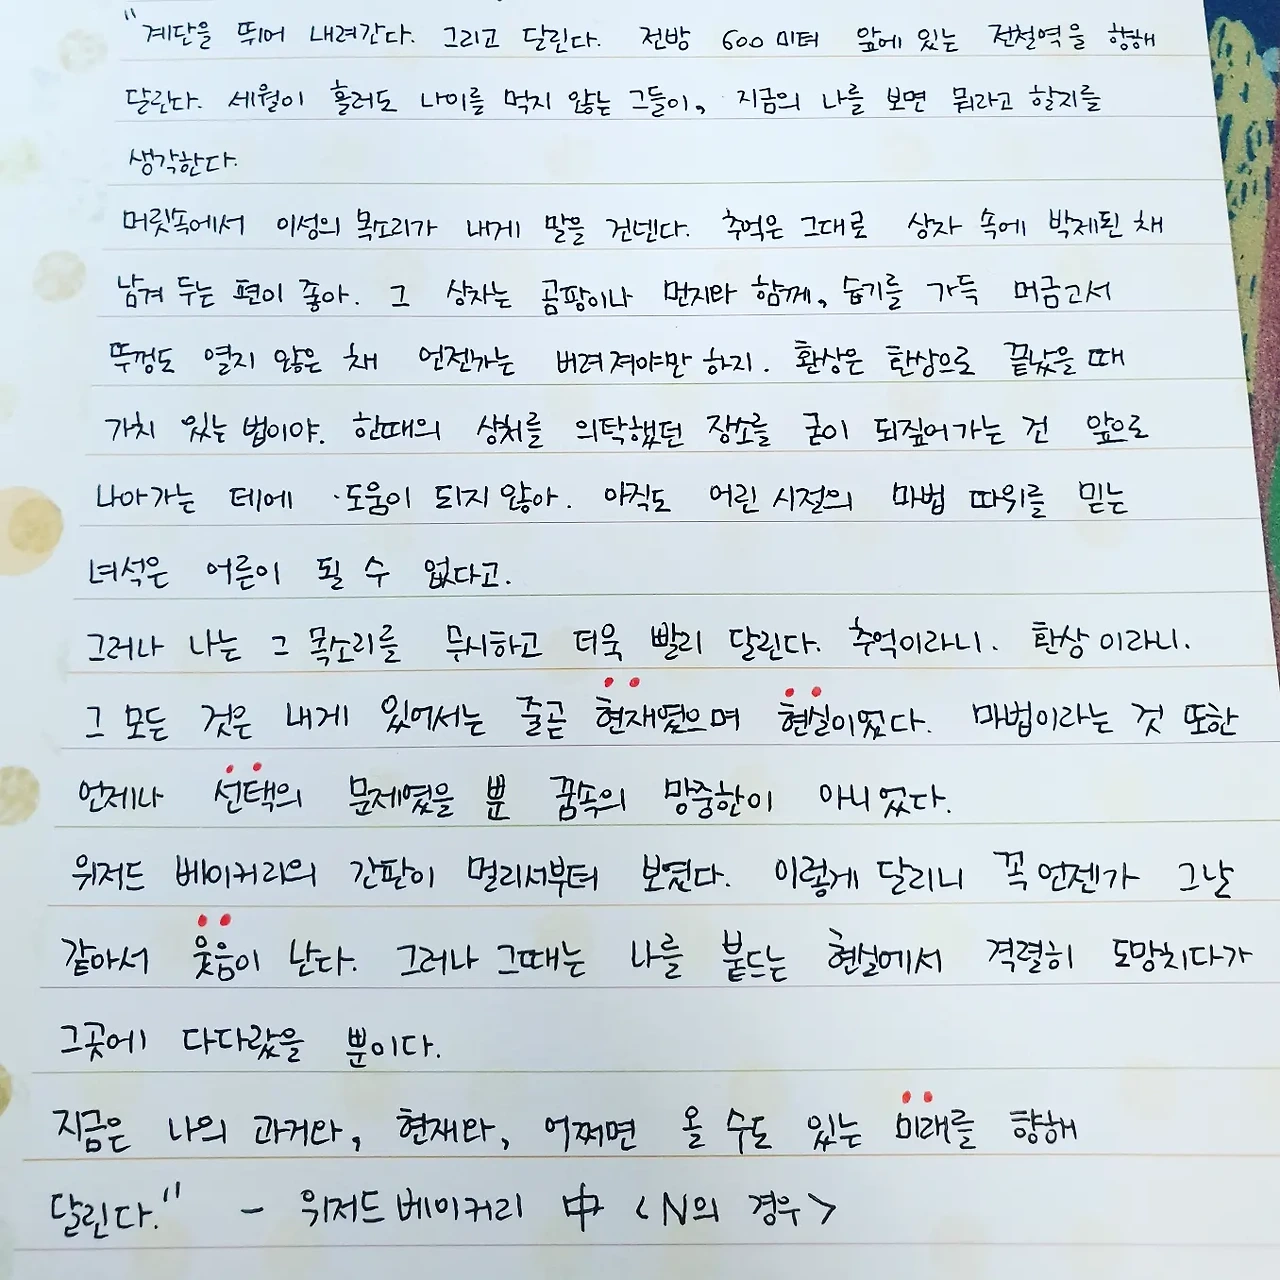 "계단을 뛰어 내려간다. 그리고 달린다. 전방 600미터 앞에 있는 전철역을 향해
달린다. 세월이 흘러도 나이를 먹지 않는 그들이, 지금의 나를 보면 뭐라고 할지를
생각한다.
머릿속에서 이성의 목소리가 내게 말을 건넨다. 추억은 그대로 상자 속에 박제된 채
남겨 두는 편이 좋아. 그 상자는 곰팡이나 먼지와 함께, 습기를 가득 머금고서
뚜껑도 열지 않은 채 언젠가는 버려져야만 하지. 환상은 환상으로 끝났을 때
가치 있는 법이야. 한때의 상처를 의탁했던 장소를 굳이 되짚어가는 건 앞으로
나아가는 데에 도움이 되지 않아. 아직도 어린 시절의 마법 따위를 믿는
녀석은 어른이 될 수 없다고.
그러나 나는 그 목소리를 무시하고 더욱 빨리 달린다. 추억이라니. 환상이라니.
그 모든 것은 내게 있어서는 줄곧 현재였으며 현실이었다. 마법이라는 것 또한
언제나 선택의 문제였을 뿐 꿈속의 망중한이 아니었다.
위저드 베이커리의 간판이 멀리서부터 보였다. 이렇게 달리니 꼭 언젠가 그날
같아서 웃음이 난다. 그러나 그때는 나를 붙드는 현실에서 격렬히 도망치다가
그곳에 다다랐을 뿐이다.
지금은 나의 과거와, 현재와, 어쩌면 올 수도 있는 미래를 향해
달린다." - 위저드 베이커리 中 <N의 경우>